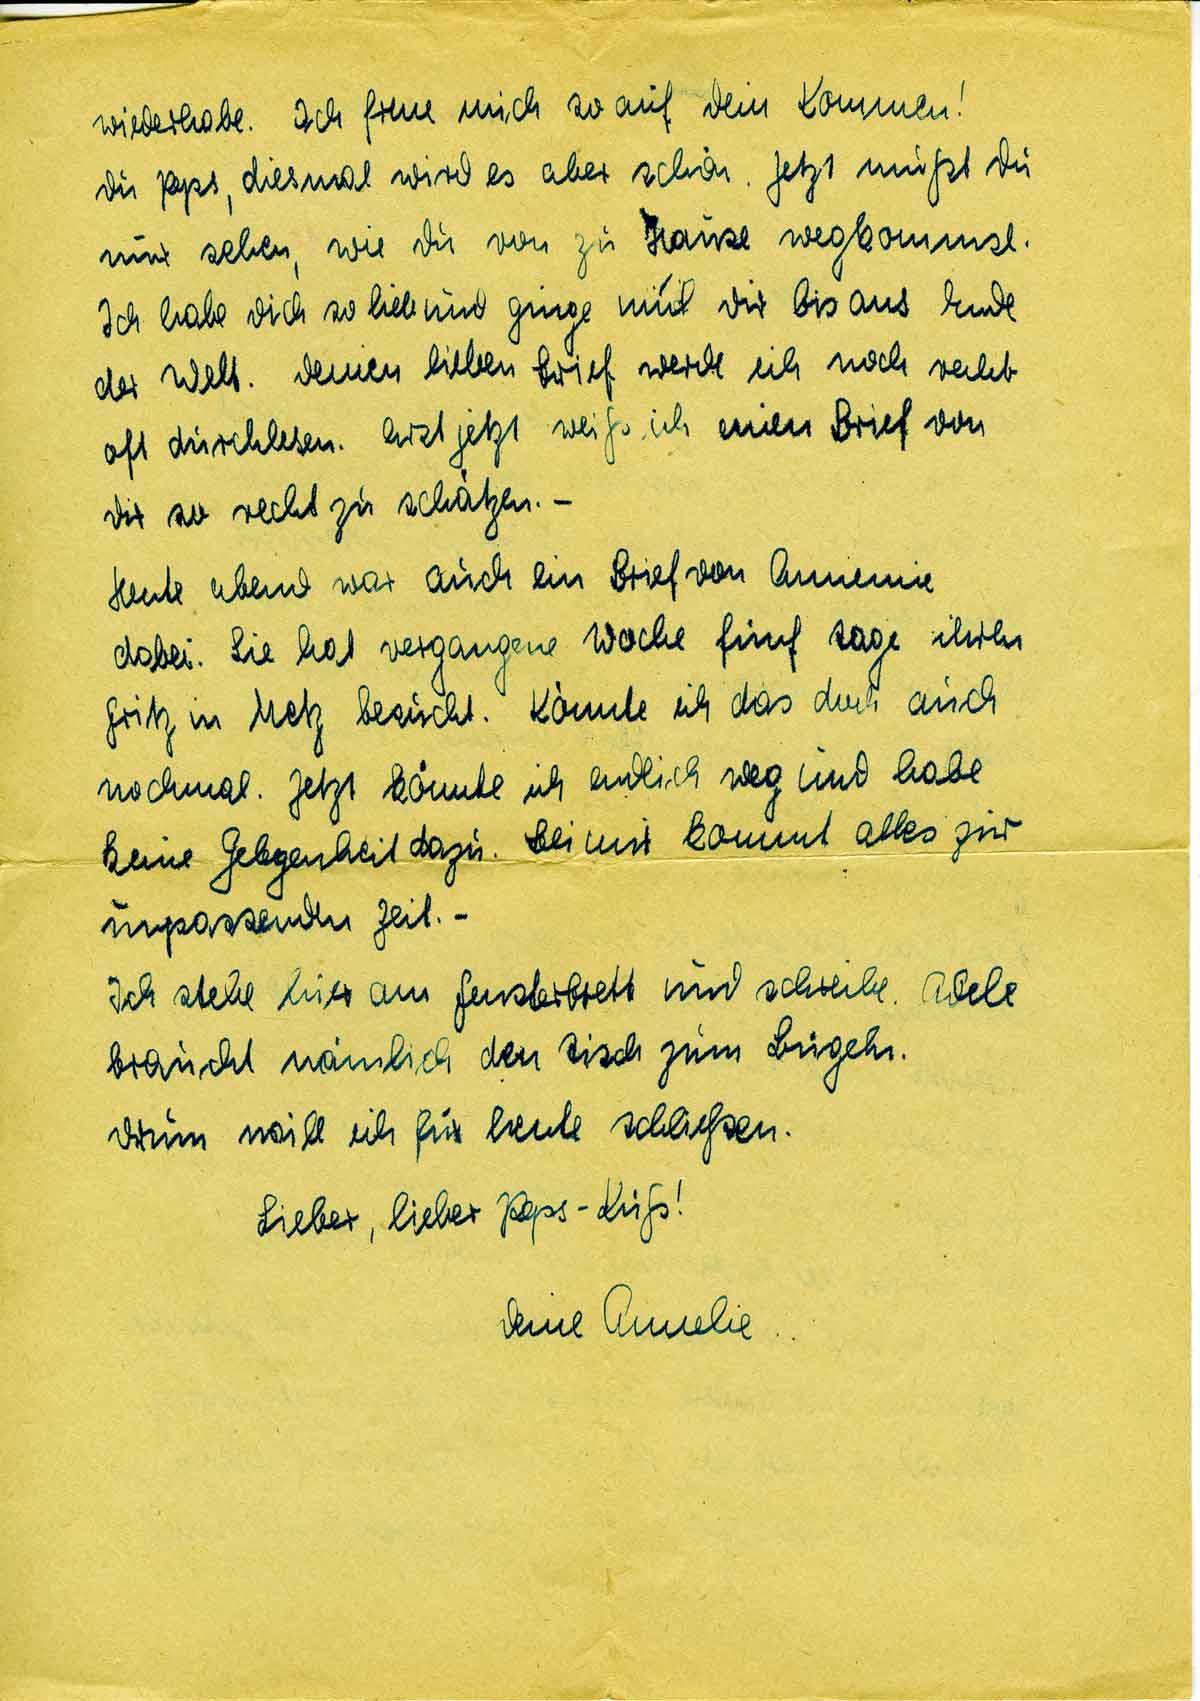 wiederhabe. Ich freue mich so auf Dein Kommen!
Du Paps, diesmal wird es aber schön. Jetzt mußt Du
nur sehen, wie Du von zu Hause wegkommst.
Ich habe Dich so lieb und ginge mit Dir bis ans Ende
der Welt. Deinen lieben Brief werde ich noch recht
oft durchlesen. Erst jetzt weiß ich einen Brief von
Dir so recht zu schätzen. –
Heute abend war auch ein Brief von Annemie
dabei. Sie hat vergangene Woche fünf Tage ihren
Fritz in Metz besucht. Könnte ich das doch auch
nochmal. Jetzt könnte ich endlich weg und habe
keine Gelegenheit dazu. Bei mir kommt alles zur
unpassenden Zeit. –
Ich stehe hier am Fensterbrett und schreibe. Adele
braucht nämlich den Tisch zum Bügeln.
Drum will ich für heute schließen.
Lieber, lieber Paps – Kuß!
Deine Annelie..